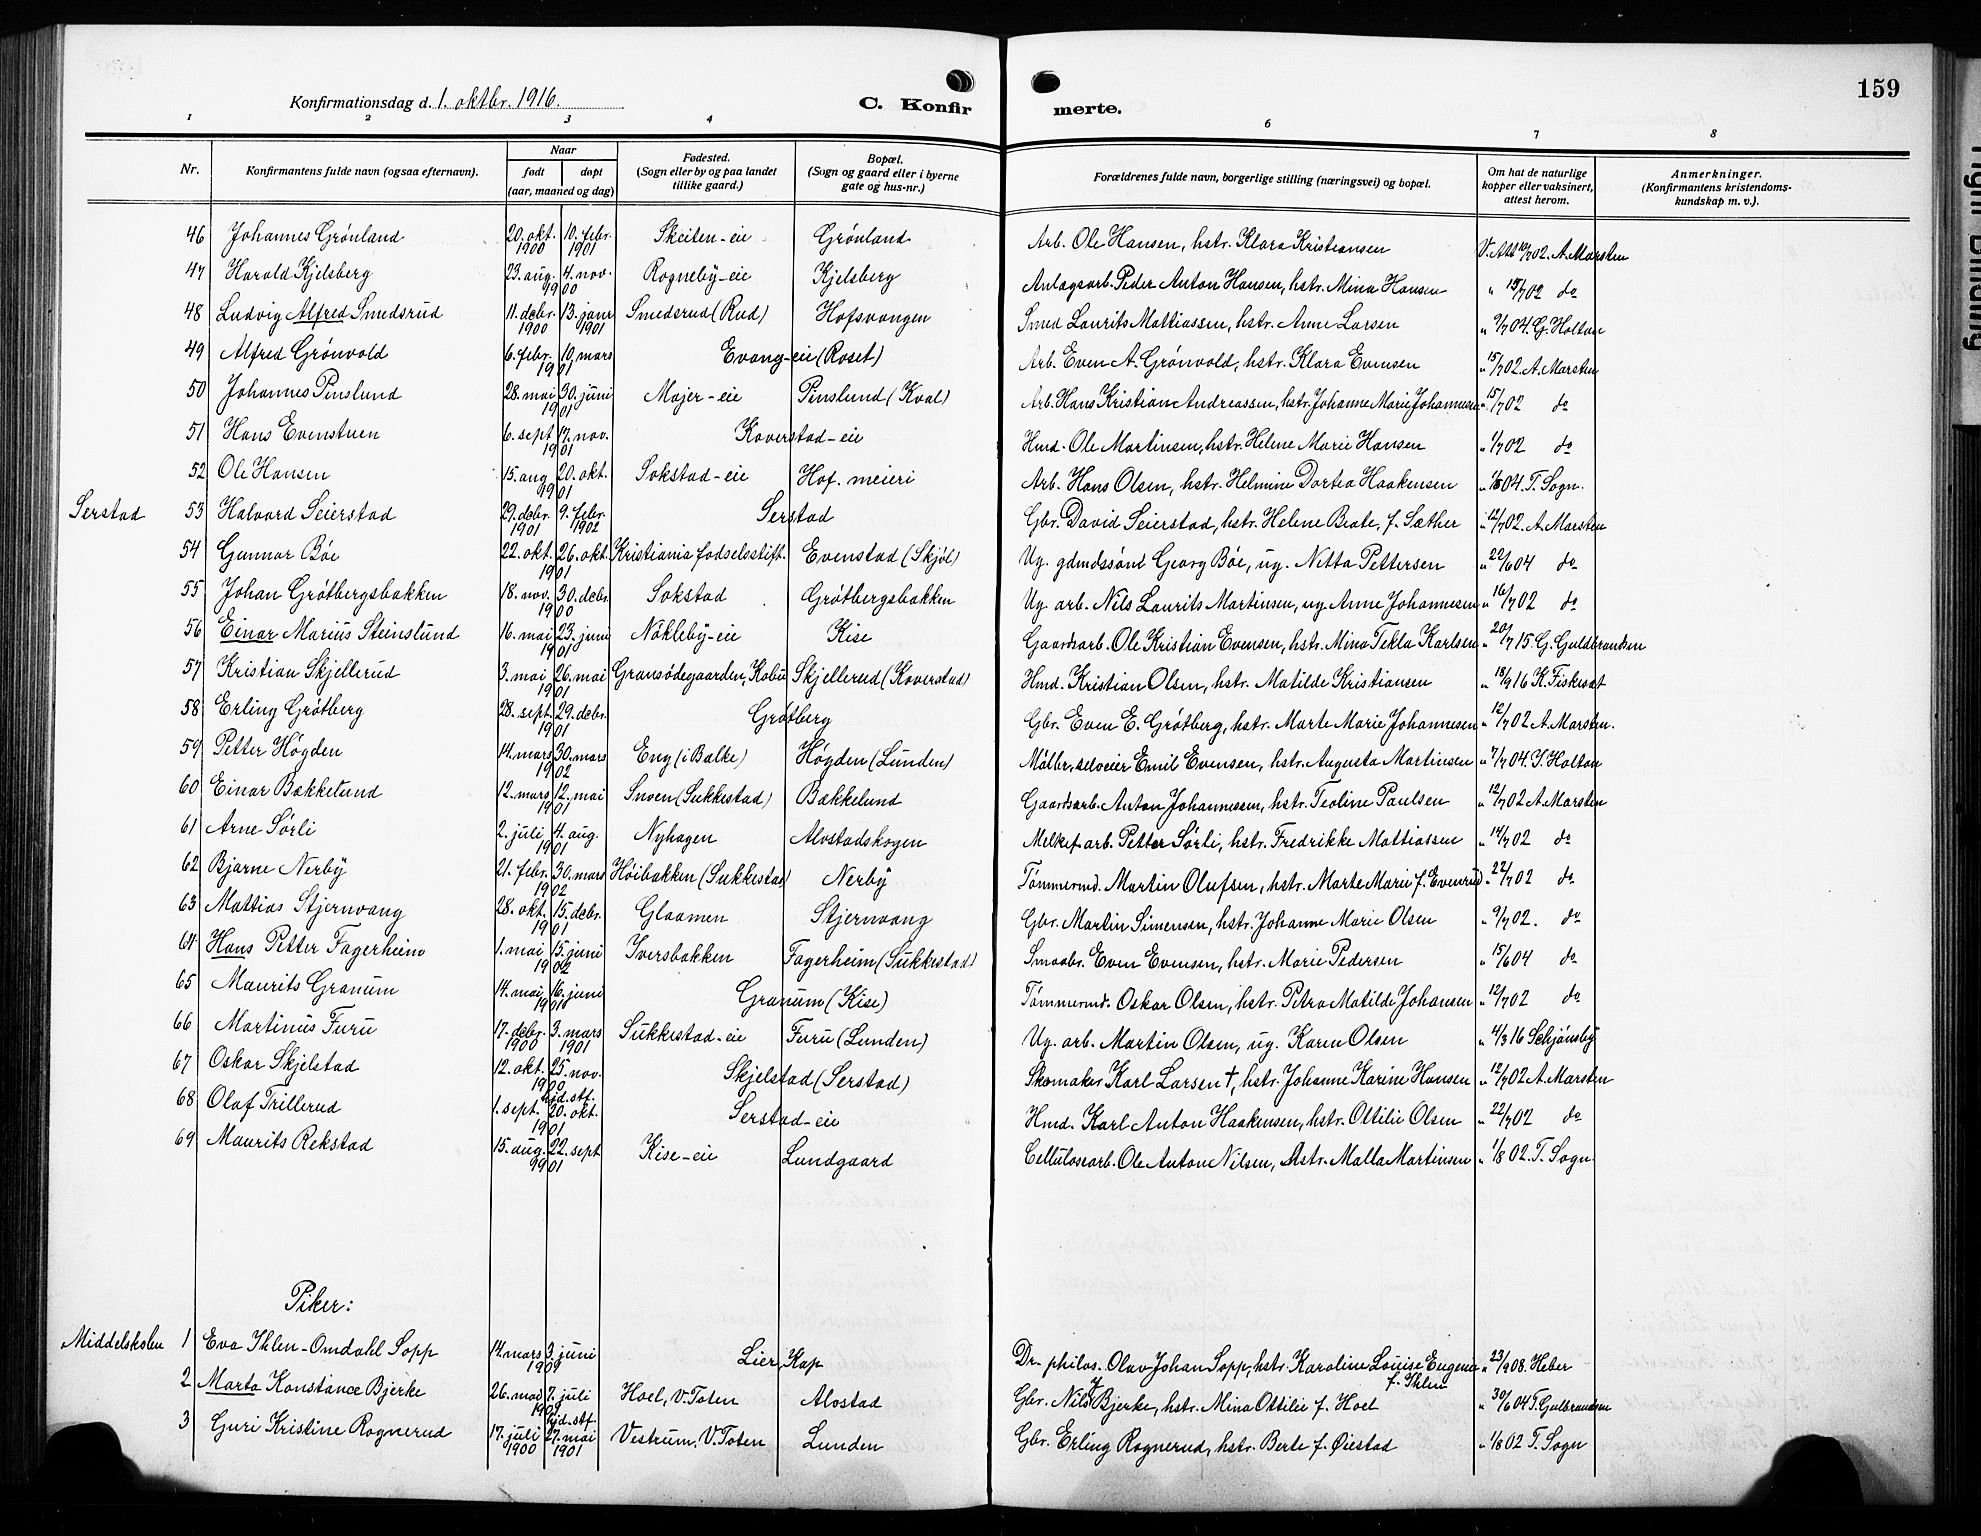 159
Konfirmationsdag d. 1. oktbr. 1916. C. Konfir merte.
1 2 3 4 6 7 8
Nr. Konfirmantens fulde navn (ogsaa efternavn). Naar født døpt (aar, maaned og dag) Fødested. (Sogn eller by og paa landet tillike gaard.) Bopæl. (Sogn og gaard eller i byerne gate og hus-nr.) Forældrenes fulde navn, borgerlige stilling (næringsvei) og bopæl. Om hat de naturlige kopper eller vaksinert, attest herom. Anmerkninger. (Konfirmantens kristendoms-kundskap m. v.).
46 Johannes Grönland 20. okt. 1900 10. febr. 1901 Skeiten-eie Grönland Arb. Ole Hansen, hstr. Klara Kristiansen V. Att 02. A. Marsten
47 Harald Kjelsberg 23. aug. 4. nov. 1900 Rogneby-eie Kjelsberg Anlagsarb. Peder Anton Hansen, hstr. Mina Hansen " 15/7 02 do
48 Ludvig Alfred Smedsrud 11. decbr. 1900 13. janr 1901 Smedsrud (Rud) Hofsvangen Smed Laurits Mattiassen, hstr. Anne Larsen " 9/7 04. G. Holton
49 Alfred Grönvold 6. febr. 10. mars 1901 Evang-eie (Roset) Arb. Even A. Grönvold, hstr. Klara Evensen " 15/7 02. A. Marsten
50 Johannes Pinslund 28. mai 30. juni 1901 Majer-eie Pinslund (Kval) Arb. Hans Kristian Andreassen, hstr. Johanne Marie Johannesen " 15/7 02 do
51 Hans Evenstuen 6. sept 17. nov. 1901 Koverstad-eie Hmd. Ole Martinsen, hstr. Helene Marie Hansen " 1/7 02 do
52 Ole Hansen 15. aug 20. okt. 1901 Sokstad-eie Hof. meieri Arb. Hans Olsen, hstr. Helmine Dortea Haakensen " 04. T. Sogn.
Serstad 53 Halvard Seierstad 29. decbr. 1901 9. febr. 1902 Serstad Gbr. David Seierstad, hstr. Helene Beate, f. Sæther " 12/7 02. A. Marsten
54 Gunnar Böe 22. okt. 26. okt 1901 Kristiania fødselsstift. Evenstad (Skjöl) Ug. gdmdssönn Georg Böe, ug. Nitta Pettersen " 22/6 04 do
55 Johan Grötbergsbakken 18. nov. 30. decbr. 1900 Sokstad Grötbergsbakken Ug. arb. Nils Laurits Martinsen, ug. Anne Johannesen " 16/7 02 do
56 Einar Marius Steinslund 16. mai 23. juni 1901 Nökleby-eie Kise Gaardsarb. Ole Kristian Evensen, hstr. Mina Tekla Karlsen " 20/7 15. G. Gulbrandsen
57 Kristian Skjellerud 3. mai 26. mai 1901 Gransödegaarden, Kolbu Skjellerud (Koverstad) Hmd. Kristian Olsen, hstr. Matilde Kristiansen " 18/9 16 K. Fiskesæt
58 Erling Grötberg 28. sept. 29. decbr. 1901 Grötberg Gbr. Even E. Grötberg, hstr. Marte Marie Johannesen " 12/7 02 A. Marsten.
59 Petter Högden 14. mars 30. mars 1902 Eng (i Balke) Högden (Lunden) Målbr, selveier Emil Evensen, hstr. Augusta Martinsen " 7/7 04. G. Holton
60 Einar Bækkelund 12. mars 12. mai 1901 Snven (Sukkestad) Bækkelund Gaardsarb. Anton Johannessen, hstr. Teoline Paulsen " 12/7 02 A. Marsten
61 Arne Sörli 2. juli 4. aug. 1901 Nyhagen Alvstadskogen Melkef arb. Petter Sörli, hstr. Fredrikke Mattiassen " 14/7 02 do
62 Bjarne Nerby 21. febr. 30. mars 1902 Höibakken (Sukkestad) Nerby Tömmermd. Martin Olufsen, hstr. Marte Marie f. Evenrud " 22/7 02 do
63 Mattias Stjernvang 28. okt. 15. decbr. 1901 Glaamen Stjernvang Gbr. Martin Simensen, hstr. Johanne Marie Olsen " 9/7 02. do
64 Hans Petter Fagerheim 1. mai 15. juni 1902 Iversbakken Fagerheim (Sukkestad) Smaabr. Even Evensen, hstr. Marie Pedersen " 15/6 04 do
65 Maurits Granum 14. mai 16. juni 1901 Granum (Kise) Tömmermd. Oskar Olsen, hstr. Petra Matilde Johansen " 12/7 02 do
66 Martinus Furu 17. decbr. 1900 3. mars 1901 Sukkestad-eie Furu (Lunden) Ug. arb. Martin Olsen, ug. Karen Olsen " 4/3 16 Schjönsby
67 Oskar Skjelstad 12. okt. 25. nov. 1900 Skjelstad (Serstad) Skomaker Karl Larsen †, hstr. Johanne Karine Hansen " 12/7 02 A. Marsten
68 Olaf Trillerud 1. sept. hjd. stf. 20. okt. 1901 Serstad-eie Hmd. Karl Anton Haakensen, hstr. Ottilie Olsen " 22/7 02 do
69 Maurits Rekstad 15. aug. 22. sept 1901 Kise-eie Lundgaard Cellulosearb. Ole Anton Nilsen, hstr. Malla Martinsen " 1/8 02. T. Sogn
Piker:
Middelskolen 1 Eva Ihlen-Omdahl Sopp 14. mars 3. juni Lier, Kap Dr. philos. Olav Johan Sopp, hstr. Karoline Louise Eugenie f. Ihlen " 23/9 08. Heber
2 Marta Konstance Bjerke 26. mai 7. juli Hoel, V. Toten Alvstad Gbr. Nils Bjerke, hstr. Mina Ottilie f. Hoel " 30/6 04 T. Gulbrandsen
3 Guri Kristine Rognerud 17. juli 1900 hjd. stf. 27. mai 1901 Vestrum, V. Toten Lunden Gbr. Erling Rognerud, hstr. Berte f. Øiestad " 1/8 02 T. Sogn